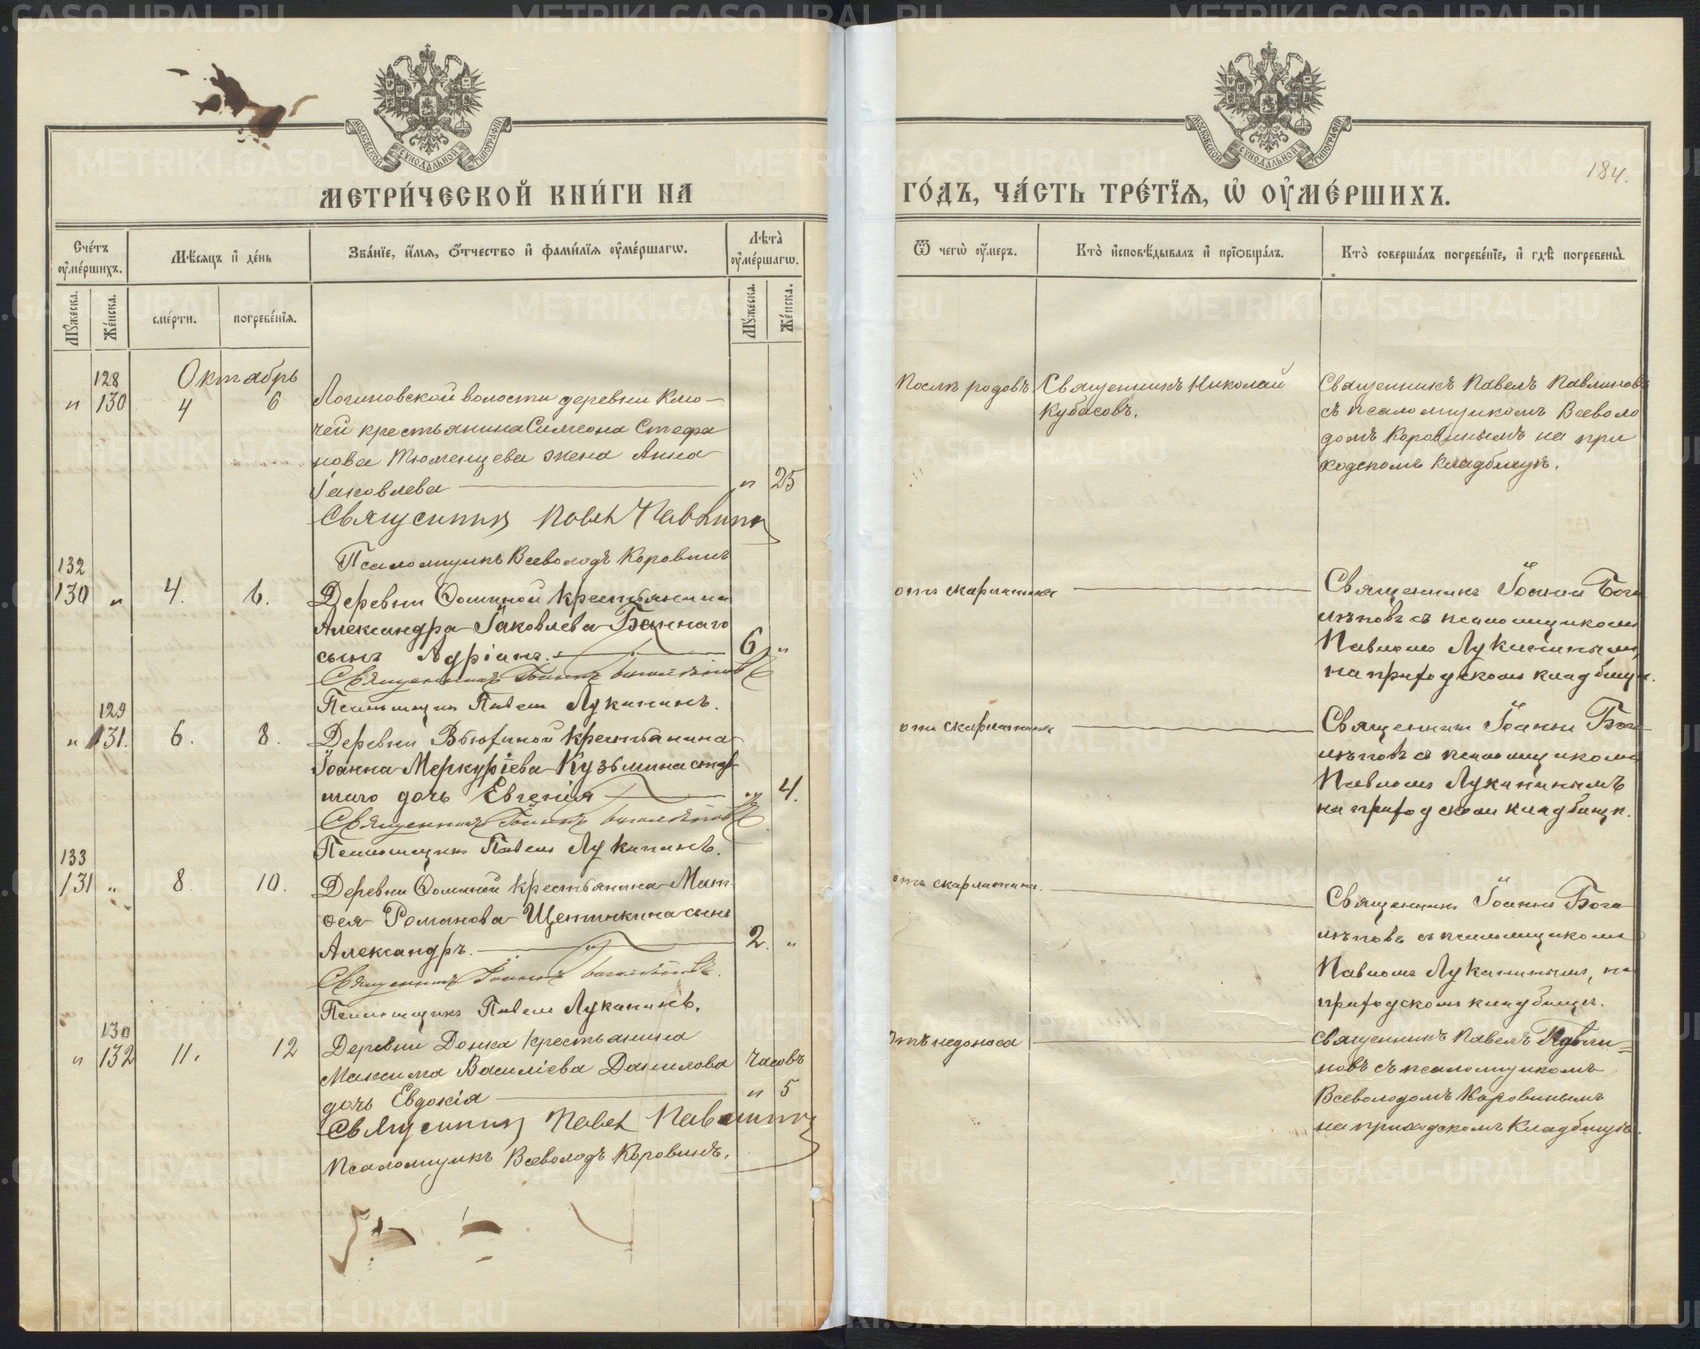 МЕТРИ́ЧЕСКОЙ КНИ́ГИ НА
ГО́ДЪ, ЧА́СТЬ ТРЕ́ТЇѦ, Ѡ҆ ОУ҆МЕ́РШИХЪ.
184.
Сче́тъ оу҆ме́ршихъ.
Мѣ́сѧцъ и҆ де́нь
Зва́нїе, и҆́мѧ, ѻ҆́тчество и҆ фами́лїѧ оу҆ме́ршагѡ.
Лѣта̀ оу҆ме́ршагѡ.
Ѿ чегѡ̀ оу҆́меръ.
Кто̀ и҆сповѣ́дывалъ и҆ прїѻбща́лъ.
Кто̀ соверша́лъ погребе́нїе, и҆ гдѣ̀ погребены̀.
Мꙋ́жеска.
Же́нска.
сме́рти.
погребе́нїѧ.
Мꙋ́жеска.
Же́нска.
128
Октябрь
" 130 4 6
Логиновской волости деревни Клю-
чей крестьянина Симеона Стефа
нова Тюменцева жена Анна
Іаковлева " 25
Священникъ Павелъ Павлиновъ
Псаломщикъ Всеволодъ Коровинъ
Послѣ родовъ
Священникъ Николай
Кубасовъ.
Священникъ Павелъ Павлиновъ
съ псаломщикомъ Всеволо
домъ Коровинымъ на при
ходскомъ кладбищѣ.
132
130 " 4. 6.
Деревни Ѳоминой крестьянина
Александра Іаковлева Баннаго
сынъ Адріанъ. 6 "
Священникъ Іоаннъ Боголѣповъ
Псаломщикъ Павелъ Луканинъ.
отъ скарлатины
Священникъ Іоаннъ Бого
лѣповъ съ псаломщикомъ
Павломъ Луканинымъ,
на приходскомъ кладбищѣ.
129
" 131. 6. 8.
Деревни Вьюхиной крестьянина
Іоанна Меркуріева Кузьмина стар
шаго дочь Евгенія " 4.
Священникъ Іоаннъ Боголѣповъ
Псаломщикъ Павелъ Луканинъ.
отъ скарлатины
Священникъ Іоаннъ Бого
лѣповъ съ псаломщикомъ
Павломъ Луканинымъ
на приходскомъ кладбищѣ.
133
131 " 8. 10.
Деревни Ѳоминой крестьянина Мат
ѳея Романова Щетинкина сынъ
Александръ. 2. "
Священникъ Іоаннъ Боголѣповъ.
Псаломщикъ Павелъ Луканинъ.
отъ скарлатины.
Священникъ Іоаннъ Бого
лѣповъ съ псаломщикомъ
Павломъ Луканинымъ, на
приходскомъ кладбищѣ.
130
" 132 11. 12
Деревни Донка крестьянина
Максима Василіева Данилова часовъ
дочь Евдокія " 5
Священникъ Павелъ Павлиновъ
Псаломщикъ Всеволодъ Коровинъ.
Отъ недоноса
Священникъ Павелъ Павли=
новъ съ псаломщикомъ
Всеволодомъ Коровинымъ
на приходскомъ кладбищѣ.
METRIKI.GASO-URAL.RU